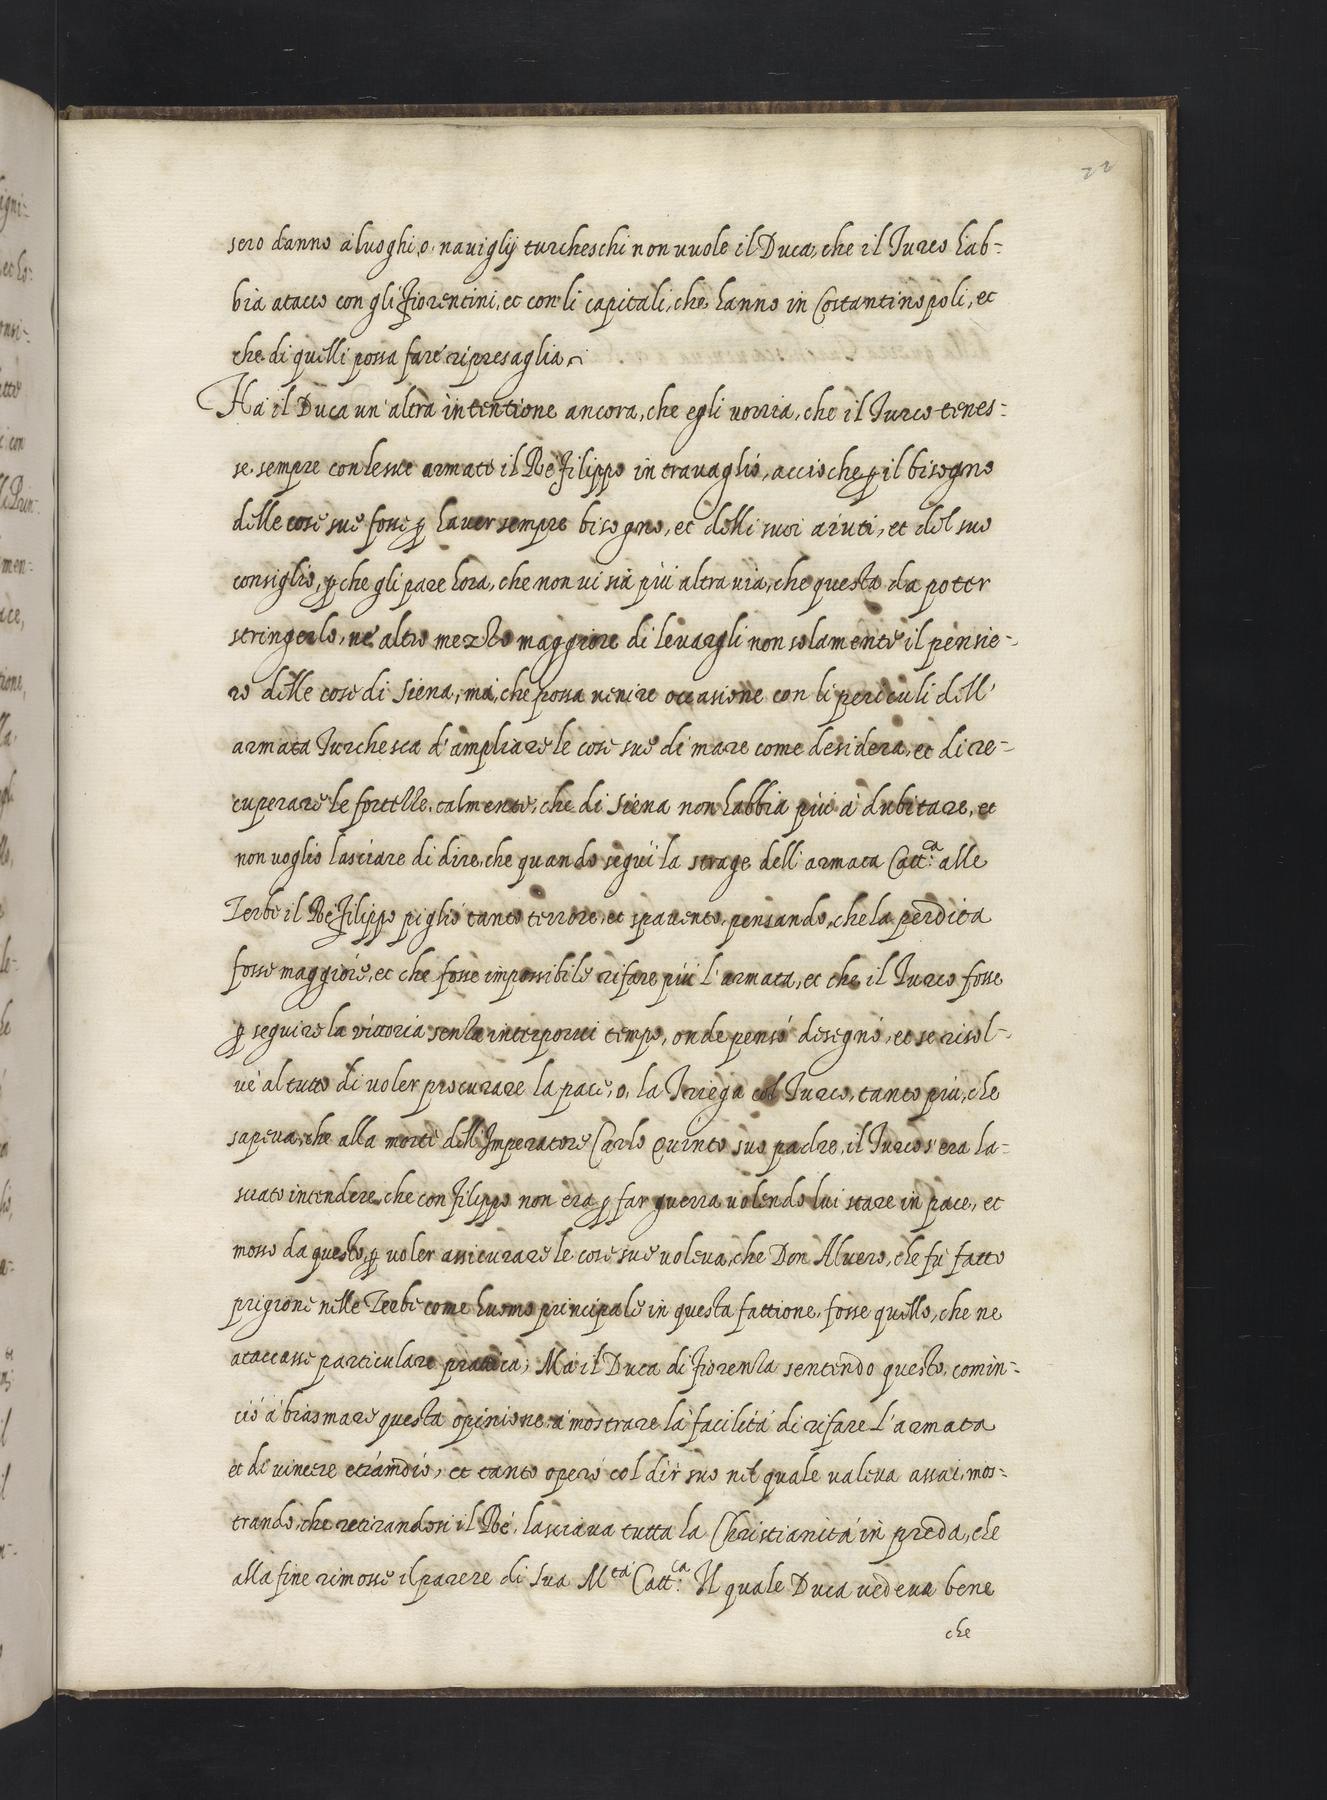 22
sero danno à luoghi, o, nauiglij turcheschi non uuole il Duca, che il Turco hab=
bia atacco con gli Fiorentini, et con li capitali, che hanno in Costantinopoli, et
che di quelli possa fare ripresaglia.
Hà il Duca un' altra intentione ancora, che egli uorria, che il Turco tenes=
se sempre con le sue armate il Rè Filippo in trauaglio, acciò che ꝑ il bisogno
delle cose sue fosse ꝑ hauer sempre bisogno, et delli suoi aiuti, et del suo
consiglio, ꝑche gli pare hora, che non ui sia più altra uia, che questa da poter
stringerlo, ne altro mezzo maggiore di leuargli non solamente il pensie=
ro delle cose di Siena, mà, che possa uenire occasione con li periculi dell'
armata Turchesca d' ampliare le cose sue di mare come desidera, et di re=
cuperare le fortezze talmente, che di Siena non habbia più à dubitare, et
non uoglio lasciare di dire, che quando seguì la strage dell' armata Catt.ca alle
Zerbe il Rè Filippo pigliò tanto terrore, et spauento, pensando, che la perdita
fosse maggiore, et che fosse impossibile rifare più l' armata, et che il Turco fosse
ꝑ seguire la vittoria senza interporui tempo, onde pensò disegnò, et se risol=
uè al tutto di uoler procurare la pace, o, la Triega col Turco, tanto più, che
sapeua, che alla morte dell' Imperatore Carlo Quinto suo padre, il Turco s' era la=
sciato intendere, che con Filippo non era ꝑ far guerra uolendo lui stare in pace, et
mosso da questo, ꝑ uoler assicurare le cose sue uoleua, che Don Aluero, che fù fatto
prigione nelle Zerbe come huomo principale in questa fattione, fosse quello, che ne
ataccasse particulare pratica; Mà il Duca di Fiorenza sentendo questo, comin=
ciò à biasmare questa opinione, à mostrare la facilità di rifare l' armata
et di uincere etiamdio, et tanto operò col dir suo nel quale ualeua assai, mos=
trando, che retirandosi il Rè, lasciaua tutta la Christianità in preda, che
alla fine rimosse il parere di Sua M.tà Catt.ca Il quale Duca uedeua bene
che